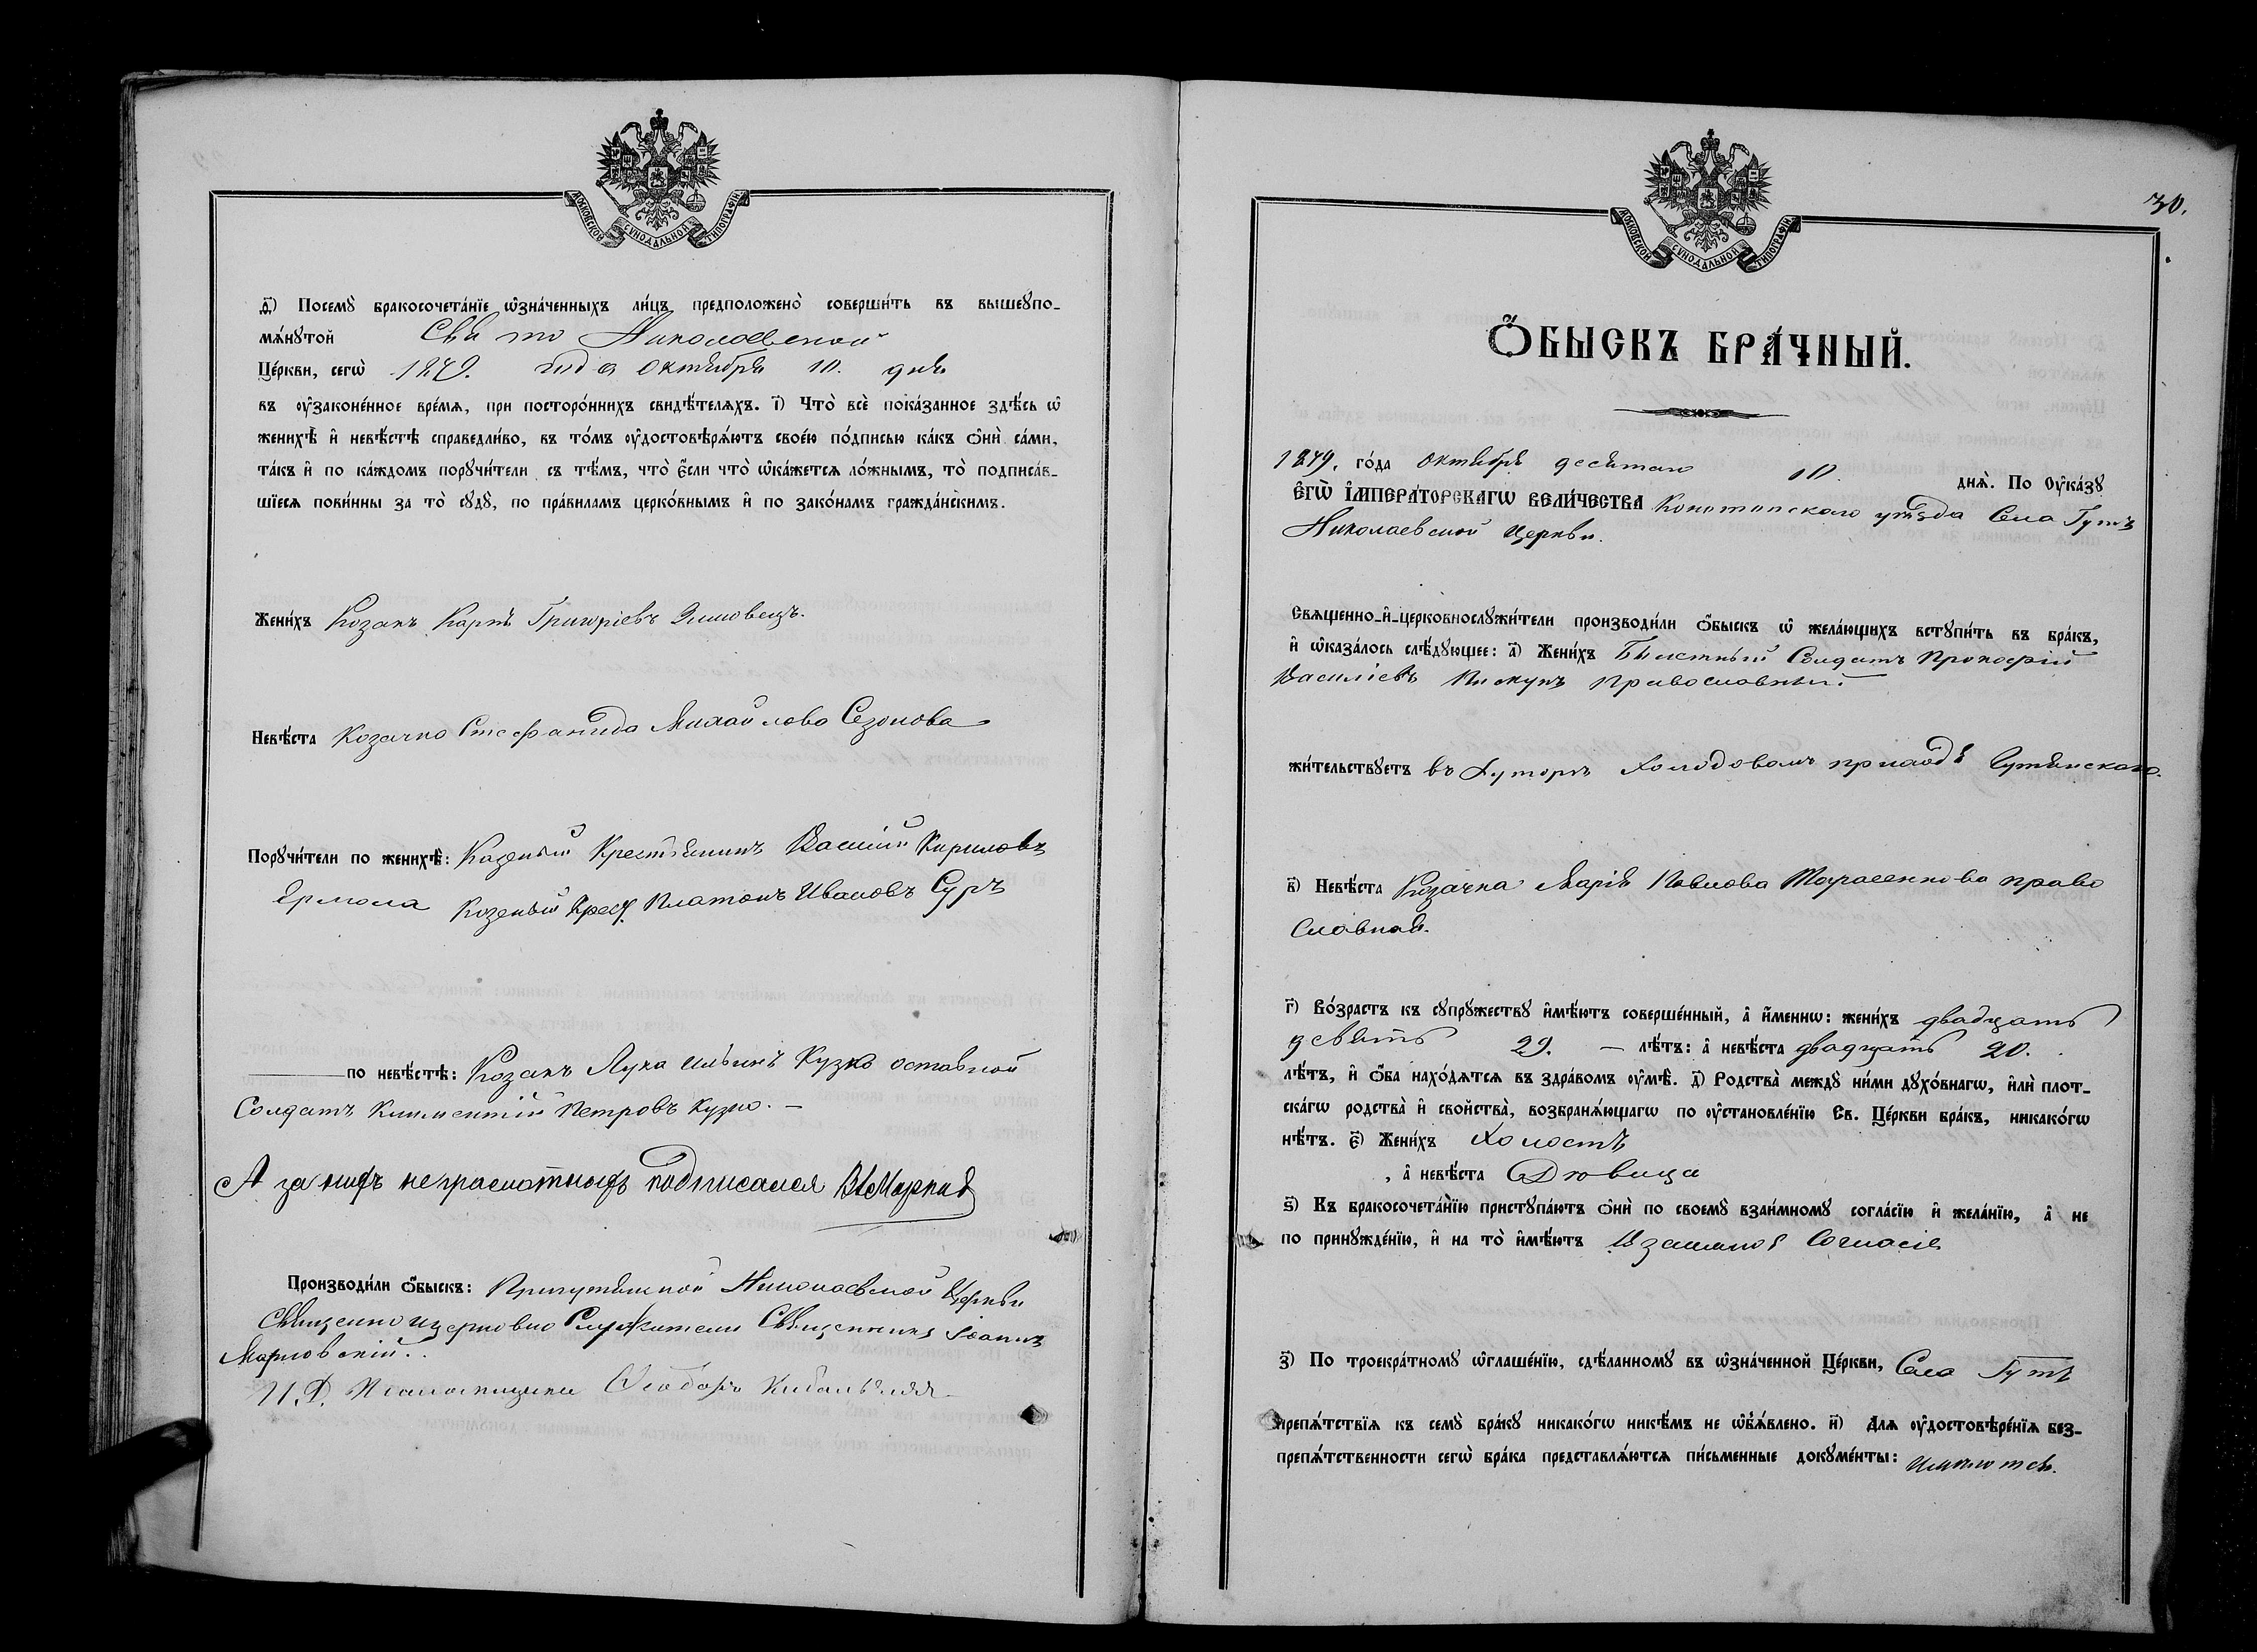 МОСКОВСКОЙ СѴНОДАЛЬНОЙ ТИПОГРАФІИ
д҃) Посемꙋ̀ бракосочета́нїе ѡ҆зна́ченныхъ ли́цъ предположено̀ соверши́ть въ вышеꙋпо-
мѧ́нꙋтой Свято Николаевской
Це́ркви, сегѡ̀ 1879. года Октября 10. дня
въ ᲂу҆законе́нное вре́мѧ, при посторо́ннихъ свидѣ́телѧхъ. і҃) Что̀ всѐ пока́занное здѣ́сь ѡ҆
женихѣ̀ и҆ невѣ́стѣ справедли́во, въ то́мъ ᲂу҆достовѣрѧ́ютъ свое́ю по́дписью ка́къ ѻ҆нѝ са́ми,
та́къ и҆ по ка́ждомъ порꙋчи́тели съ тѣ́мъ, что̀ є҆́сли что̀ ѡ҆ка́жетсѧ ло́жнымъ, то̀ подписа́в-
шїесѧ пови́нны за то̀ сꙋдꙋ̀, по пра́виламъ церко́внымъ и҆ по зако́намъ гражда́нскимъ.
Жени́хъ Козакъ Карпъ Григоріевъ Зимовецъ.
Невѣ́ста Козачка Стефанида Михайлова Сезонова
Порꙋчи́тели по женихѣ̀: Казеный Крестьянинъ Василій Кириловъ
Ермола Козеный Крест. Платонъ Ивановъ Суръ
по невѣ́стѣ: Козакъ Лука Ильинъ Кузко оставной
Солдатъ Климентій Петровъ Кузко. –
А за нихъ неграмотныхъ подписался
Производи́ли ѻ҆́быскъ: Пригутянской Николаевской Церкви
Священно и церковно Служители Священникъ Іоаннъ
Марковскій.
И. Д. Псаломщика Ѳеодоръ
МОСКОВСКОЙ СѴНОДАЛЬНОЙ ТИПОГРАФІИ
30.
Ѻ҆́БЫСКЪ БРА́ЧНЫЙ.
1879. го́да Октября десятаго 10. днѧ̀. По Оу҆ка́зꙋ
Є҆ГѠ̀ І҆МПЕРА́ТОРСКАГѠ ВЕЛИ́ЧЕСТВА Конотопского уѣзда Села Гутъ
Николаевской Церкви.
Свѧщенно-и҆-церковнослꙋжи́тели производи́ли ѻ҆́быскъ ѡ҆ жела́ющихъ встꙋпи́ть въ бра́къ,
и҆ ѡ҆каза́лось слѣ́дꙋющее: а҃) Жени́хъ Билетный Солдатъ Прокофій
Василіевъ Пискунъ православный.
жи́тельствꙋетъ въ Хуторѣ Холодовомъ приходѣ Гутянского.
в҃) Невѣ́ста Козачка Марія Павлова Тарасенкова право
славная.
г҃) Во́зрастъ къ сꙋпрꙋ́жествꙋ и҆мѣ́ютъ соверше́нный, а҆ и҆́меннѡ: жени́хъ двадцать
девять 29. – лѣ́тъ: а҆ невѣ́ста двадцать 20.
лѣ́тъ, и҆ ѻ҆́ба нахо́дѧтсѧ въ здра́вомъ ᲂу҆мѣ̀. д҃) Родства̀ междꙋ̀ ни́ми дꙋхо́внагѡ, и҆лѝ плот-
ска́гѡ родства̀ и҆ свойства̀, возбранѧ́ющагѡ по ᲂу҆становле́нїю Св. Це́ркви бра́къ, никако́гѡ
нѣ́тъ. є҃) Жени́хъ Холостъ
, а҆ невѣ́ста Дѣвица
ѕ҃) Къ бракосочета́нїю пристꙋпа́ютъ ѻ҆нѝ по своемꙋ̀ взаи́мномꙋ согла́сїю и҆ жела́нїю, а҆ не
по принꙋжде́нїю, и҆ на то̀ и҆мѣ́ютъ Взаимное Согласіе
з҃) По троекра́тномꙋ ѡ҆глаше́нїю, сдѣ́ланномꙋ въ ѡ҆зна́ченной Це́ркви, Села Гутъ
препѧ́тствїѧ къ семꙋ̀ бра́кꙋ никако́гѡ никѣ́мъ не ѡ҆б̾ѧ́влено. и҃) Длѧ ᲂу҆достовѣре́нїѧ без-
препѧ́тственности сегѡ̀ бра́ка представлѧ́ютсѧ пи́сьменные докꙋме́нты: